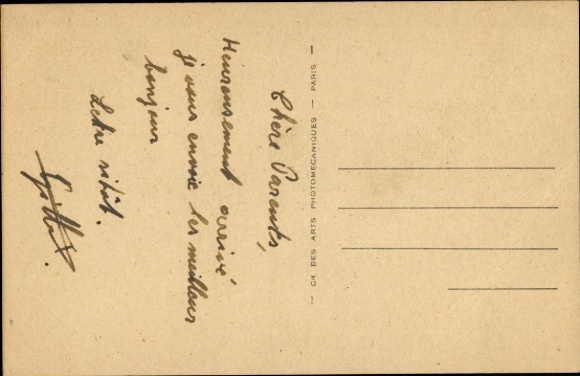 Chère Parents,
Heureusement arrivé
je vous envoie les meilleurs
bonjour
Lettre sitôt.
— CIE DES ARTS PHOTOMECANIQUES — PARIS —